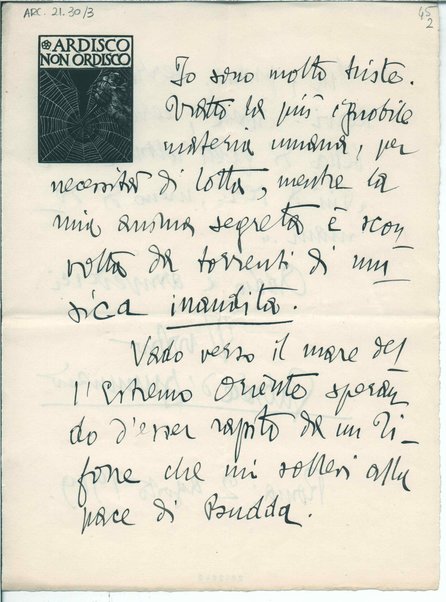 ARC. 21. 30/3
45/2
ARDISCO
NON ORDISCO
Io sono molto triste.
Tratto la più ignobile
materia umana, per
necessità di lotta, mentre la
mia anima segreta è scon
volta da torrenti di mu
sica inaudita.
Vado verso il mare del
l'Estremo Oriente speran
do d'esser rapito da un Ti-
fone che mi sollevi alla
pace di Budda.